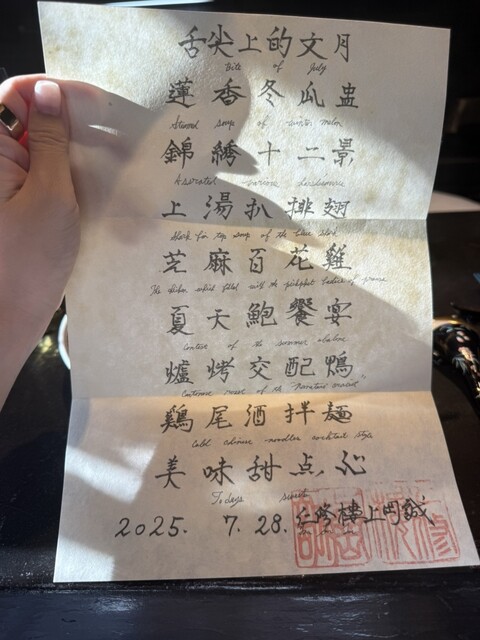 舌尖上的文月
Bite of July
蓮香冬瓜盅
Steamed soup of winter melon
錦綉十二景
Assorted various
上湯扒排翅
Shark fin top soup of the blue shark
芝麻百花雞
The chicken which filled with the
夏天鮑饗宴
Contest of the summer abalone
爐烤交配鴨
of the
鷄尾酒拌麺
Cold chinese noodles cocktail style
美味甜点心
Todays sweets
2025. 7. 28.